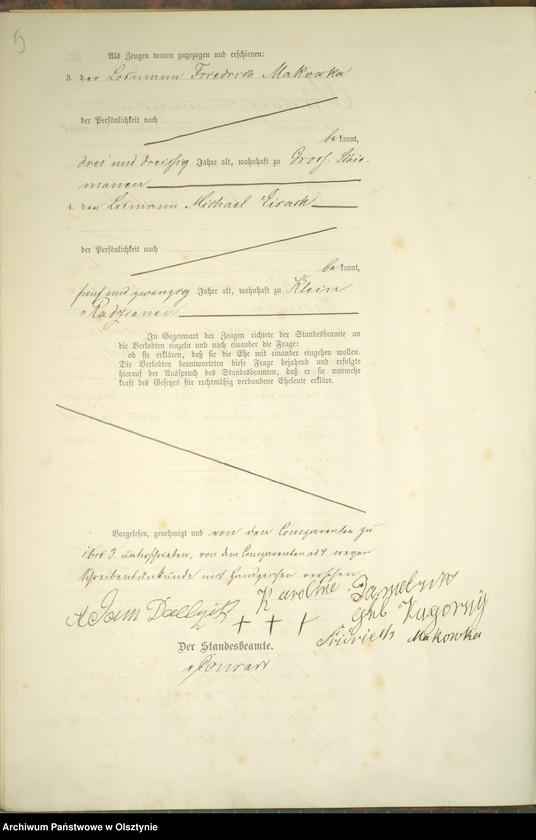 5
Als Zeugen waren zugezogen und erschienen:
3. der Losmann Friedrich Makowka
der Persönlichkeit nach
bekannt,
drei und dreissig Jahre alt, wohnhaft zu Gross Schie-
manen
4. der Losmann Michael
der Persönlichkeit nach
bekannt,
fünf und zwanzig Jahre alt, wohnhaft zu Klein
Radzienen
In Gegenwart der Zeugen richtete der Standesbeamte an
die Verlobten einzeln und nach einander die Frage:
ob sie erklären, daß sie die Ehe mit einander eingehen wollen.
Die Verlobten beantworteten diese Frage bejahend und erfolgte
hierauf der Ausspruch des Standesbeamten, daß er sie nunmehr
kraft des Gesetzes für rechtmäßig verbundene Eheleute erkläre.
Vorgelesen, genehmigt und von den Comparenten zu
1 bis 3 unterschrieben, von dem Comparenten ad 4 wegen
Schreibensunkunde mit Handzeichen versehen
Adam Karoline
geb Zagorny
+ + + Friedrich Makowka
Der Standesbeamte.